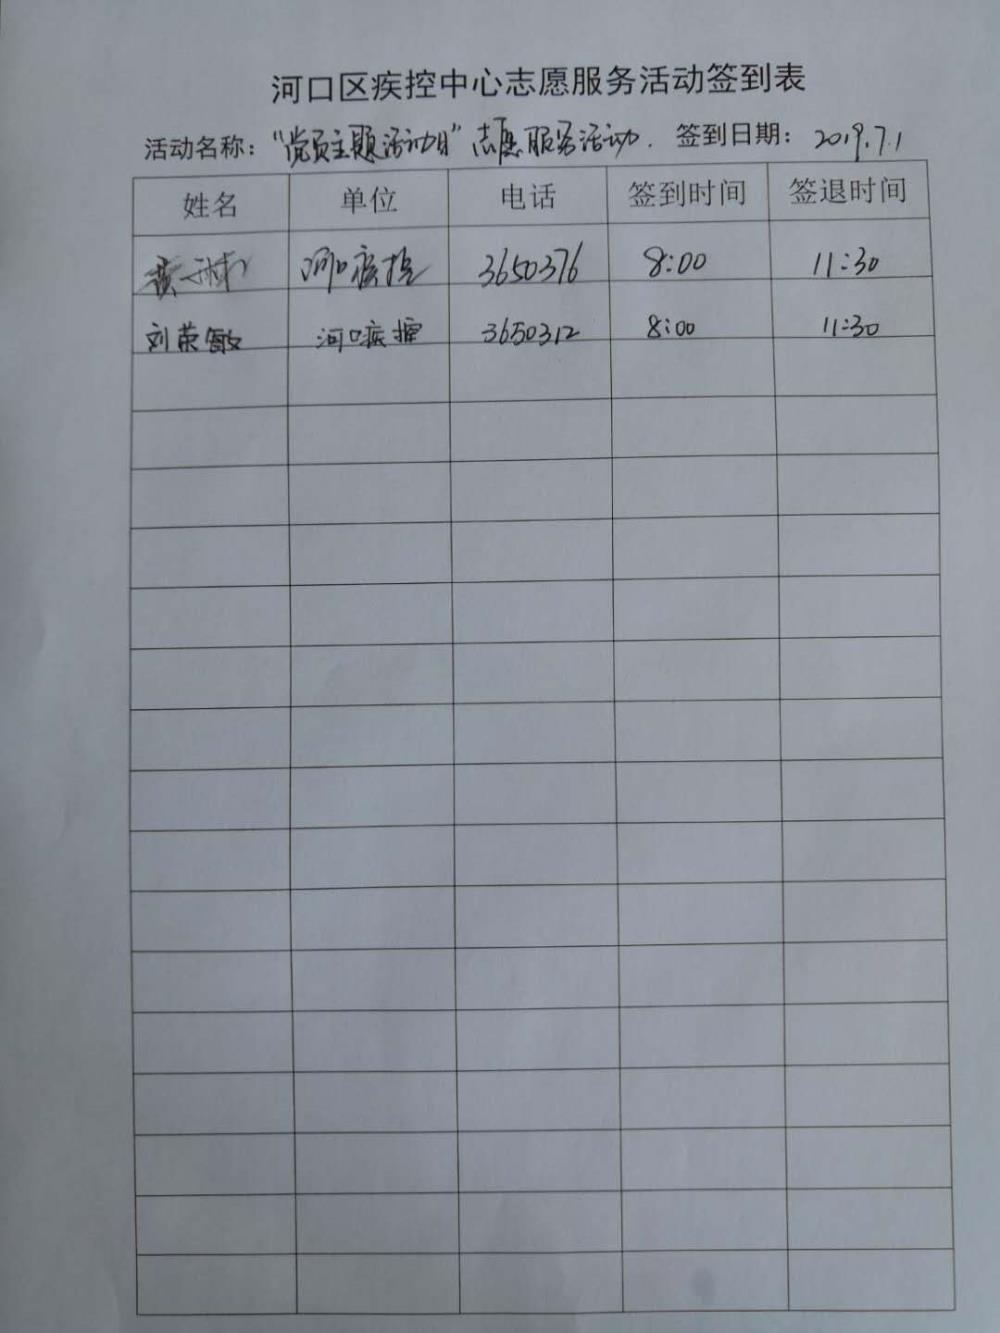 河口区疾控中心志愿服务活动签到表
活动名称："党员主题活动日"志愿服务活动. 签到日期：2019.7.1
姓名 单位 电话 签到时间 签退时间
黄 河口疾控 3650376 8:00 11:30
刘荣敏 河口疾控 3650312 8:00 11:30